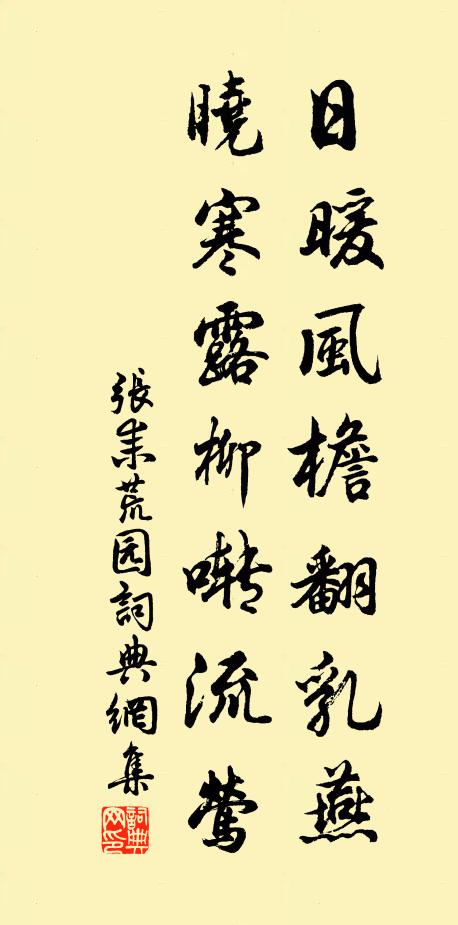 日暖風檐翻乳燕
曉寒露柳囀流鶯
張耒荒园詞典網集
詞典網印